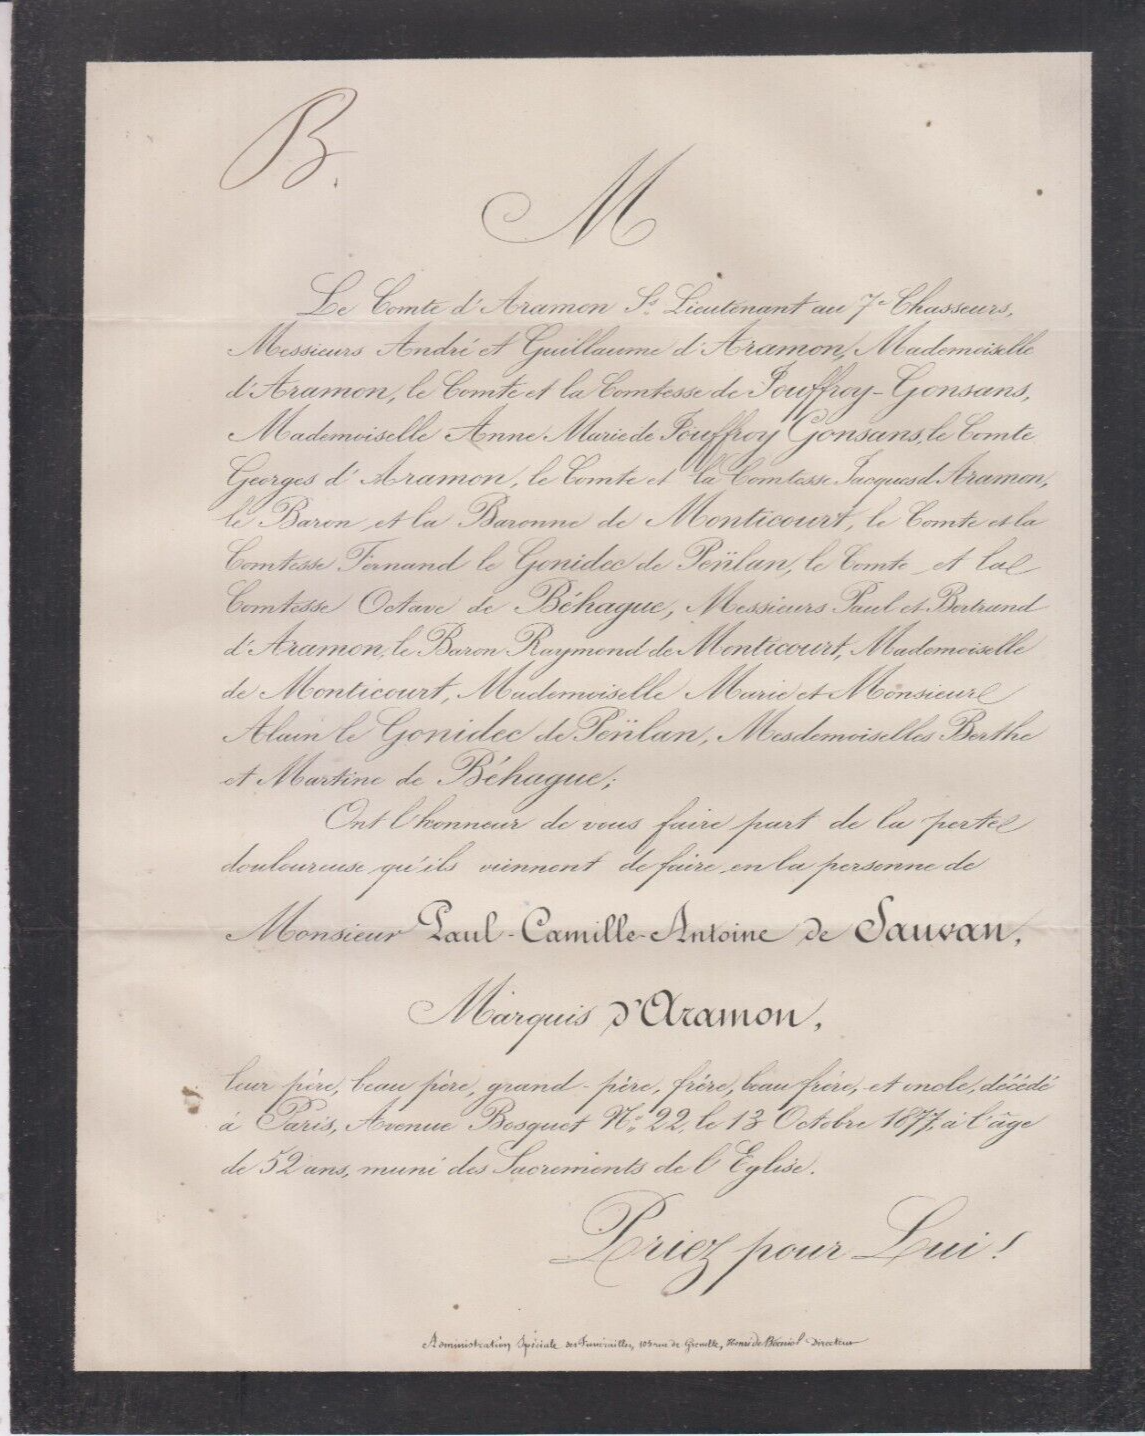 B.
M
Le Comte d'Aramon Ss. Lieutenant au 7e Chasseurs,
Messieurs André et Guillaume d'Aramon, Mademoiselle
d'Aramon, le Comte et la Comtesse de Jouffroy-Gonsans,
Mademoiselle Anne Marie de Jouffroy Gonsans, le Comte
Georges d'Aramon, le Comte et la Comtesse Jacques d'Aramon,
le Baron et la Baronne de Monticourt, le Comte et la
Comtesse Fernand le Gonidec de Penlan, le Comte et la
Comtesse Octave de Béhague, Messieurs Paul et Bertrand
d'Aramon, le Baron Raymond de Monticourt, Mademoiselle
de Monticourt, Mademoiselle Marie et Monsieur
Alain le Gonidec de Penlan, Mesdemoiselles Berthe
et Martine de Béhague;
Ont l'honneur de vous faire part de la perte
douloureuse qu'ils viennent de faire en la personne de
Monsieur Paul-Camille-Antoine de Sauvan,
Marquis d'Aramon,
leur père, beau père, grand-père, frère, beau frère, et oncle, décédé
à Paris, Avenue Bosquet No. 22, le 13 Octobre 1877, à l'âge
de 52 ans, muni des Sacrements de l'Eglise.
Priez pour Lui!
Administration Spéciale des Funérailles, 103 rue de Grenelle, Henri de Borniol Directeur